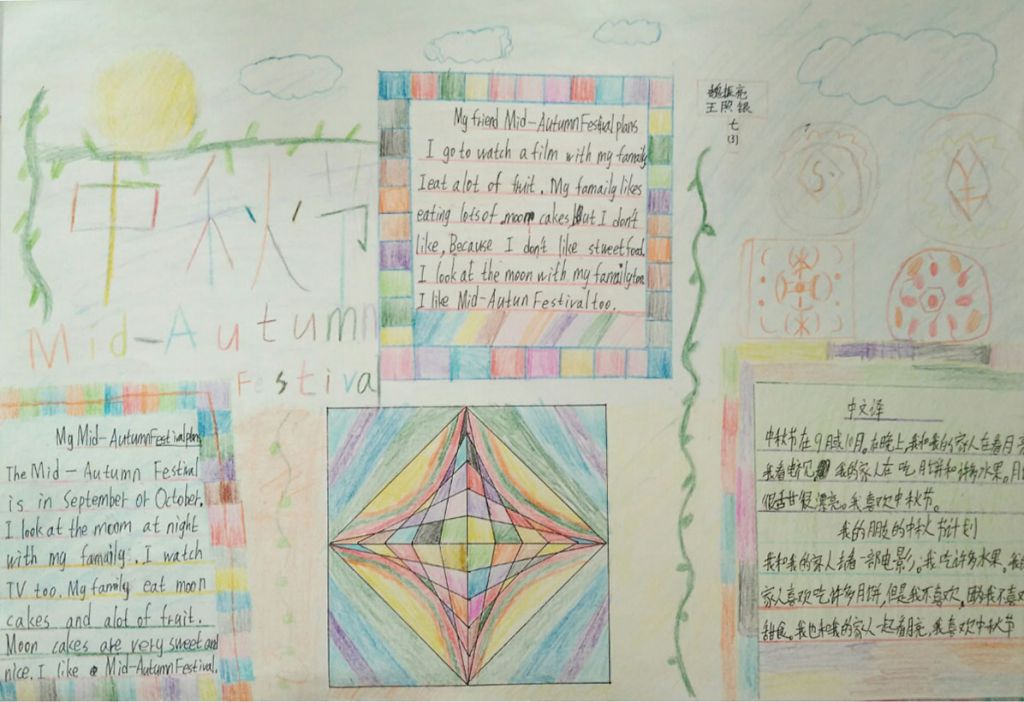 中秋节
Mid-Autumn
Festiva
My friend Mid-Autumn Festival plans
I go to watch a film with my famaily
I eat alot of fruit. My famaily likes
eating lots of moon cakes. But I don't
like, Because I don't like stweet food.
I look at the moon with my famaily too.
I like Mid-Autun Festival too.
王熙银
七
(3)
My Mid-Autumn Festival plans
The Mid-Autumn Festival
is in September or October.
I look at the moom at night
with my famaily. I watch
TV too. My family eat moon
cakes and alot of fruit.
Moon cakes are very sweet and
nice. I like Mid-Autumn Festival.
中文译
中秋节在9月或10月。在晚上,我和我的家人在看月
我看电视 我的家人在吃月饼和许多水果。月
很甜很漂亮。我喜欢中秋节。
我的朋友的中秋节计划
我和我的家人去看一部电影。我吃许多水果。我
家人喜欢吃许多月饼,但是我不喜欢,因为我不喜欢
甜食。我也和我的家人一起看月亮。我喜欢中秋节